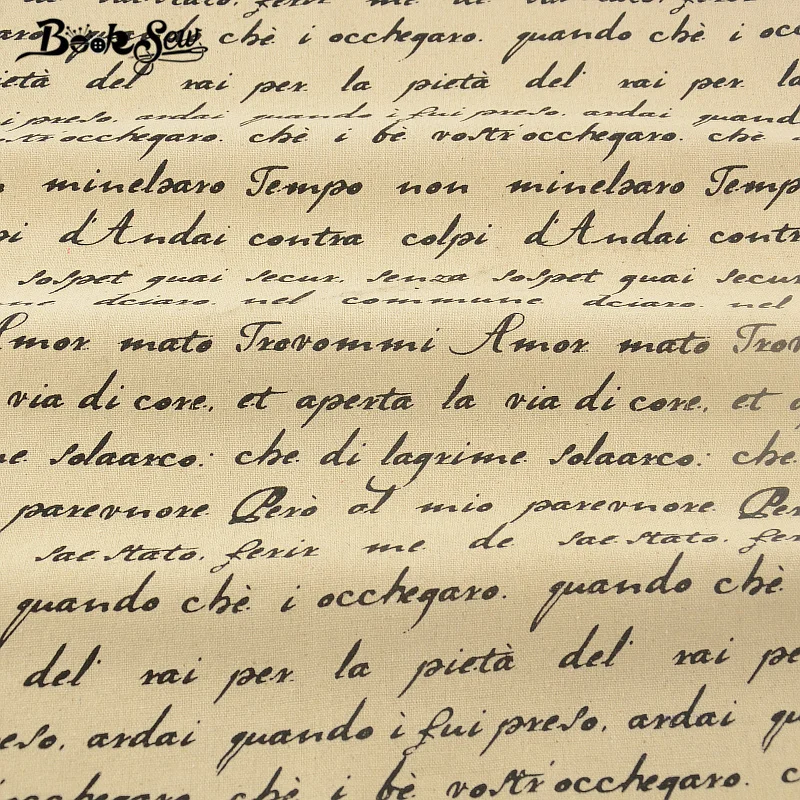 Book Sew
chè i occhegaro. quando chè i occ
pietà del' rai per. la pietà del' rai per. la
i preso. ardai quando i fui preso. ardai quando
occhegaro. chè i bè vostr'occhegaro. chè
minelsaro Tempo non minelsaro Temp
pi d'Andai contra colpi d'Andai contr
sospet guai secur. senza sospet guai secur
dciaro. nel commune dciaro. nel
Amor mato Trovommi Amor mato Trov
via di core., et aperta la via di core., et a
me solaarco: che di lagrime solaarco: che
parevnore Però al mio parevnore Per
sae stato. ferir me de sae stato. fer
quando chè i occhegaro. quando chè
del' rai per. la pietà del' rai pe
eso. ardai quando i fui preso. ardai qu
occhegaro. chè i bè vostr'occhegaro. c